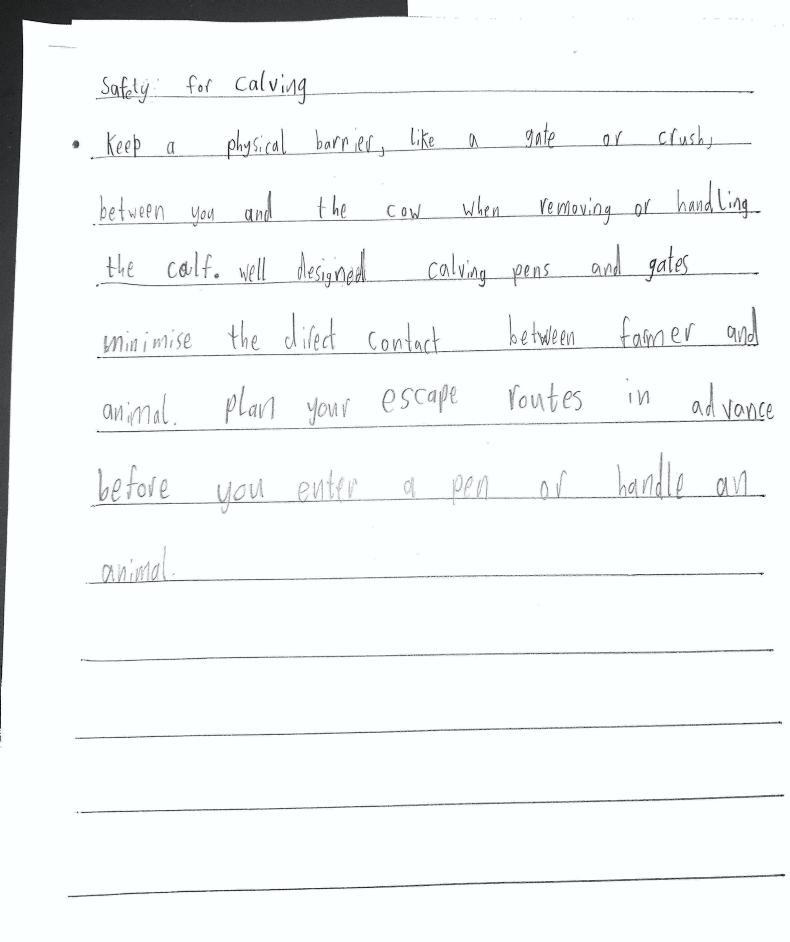 Safety: for Calving
• Keep a physical barrier, like a gate or crush,
between you and the cow when removing or handling
the calf. well designed calving pens and gates
minimise the direct contact between famer and
animal. Plan your escape routes in advance
before you enter a pen or handle an
animal.